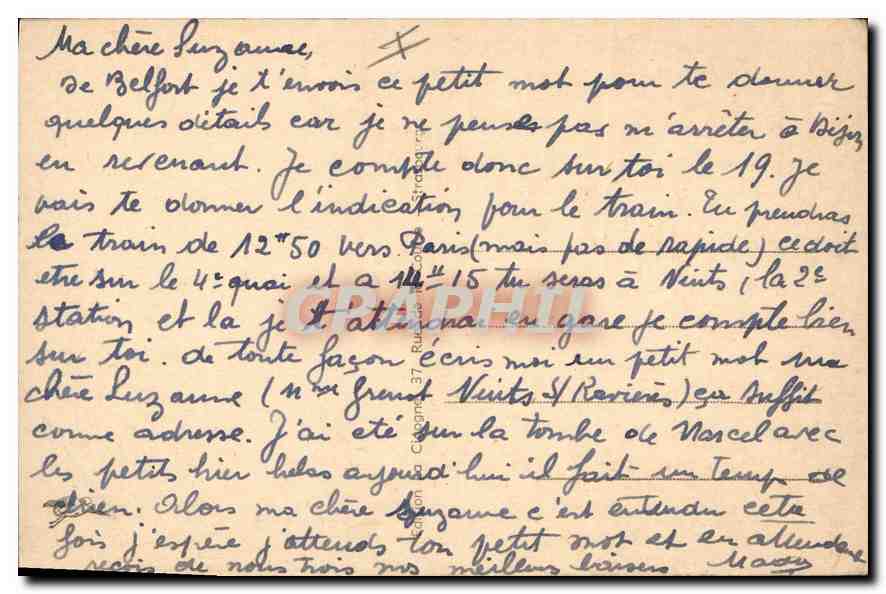 Ma chère Suzanne,
De Belfort je t'envois ce petit mot pour te donner
quelques détails car je ne penses pas m'arrêter à Dijon
en revenant. Je compte donc sur toi le 19. Je
vais te donner l'indication pour le train. Tu prendras
le train de 12H50 vers Paris (mais pas de rapide) ce doit
etre sur le 4e quai et a 14H15 tu seras à Nuits, la 2e
station et la je t'attindrai en gare je compte bien
sur toi. de toute façon écris moi un petit mot ma
chère Suzanne (Mme Nuits S/ Ravières) ça suffit
comme adresse. J'ai eté sur la tombe de Marcel avec
les petits hier helas aujourd'hui il fait un temps de
chien. Alors ma chère Suzanne c'est entendu cette
fois j'espère j'attends ton petit mot et en attendant
reçois de nous trois nos meilleurs baisers Mady
Edition La Cigogne, 37, Rue de la Course - Strasbourg
CPAPHIL